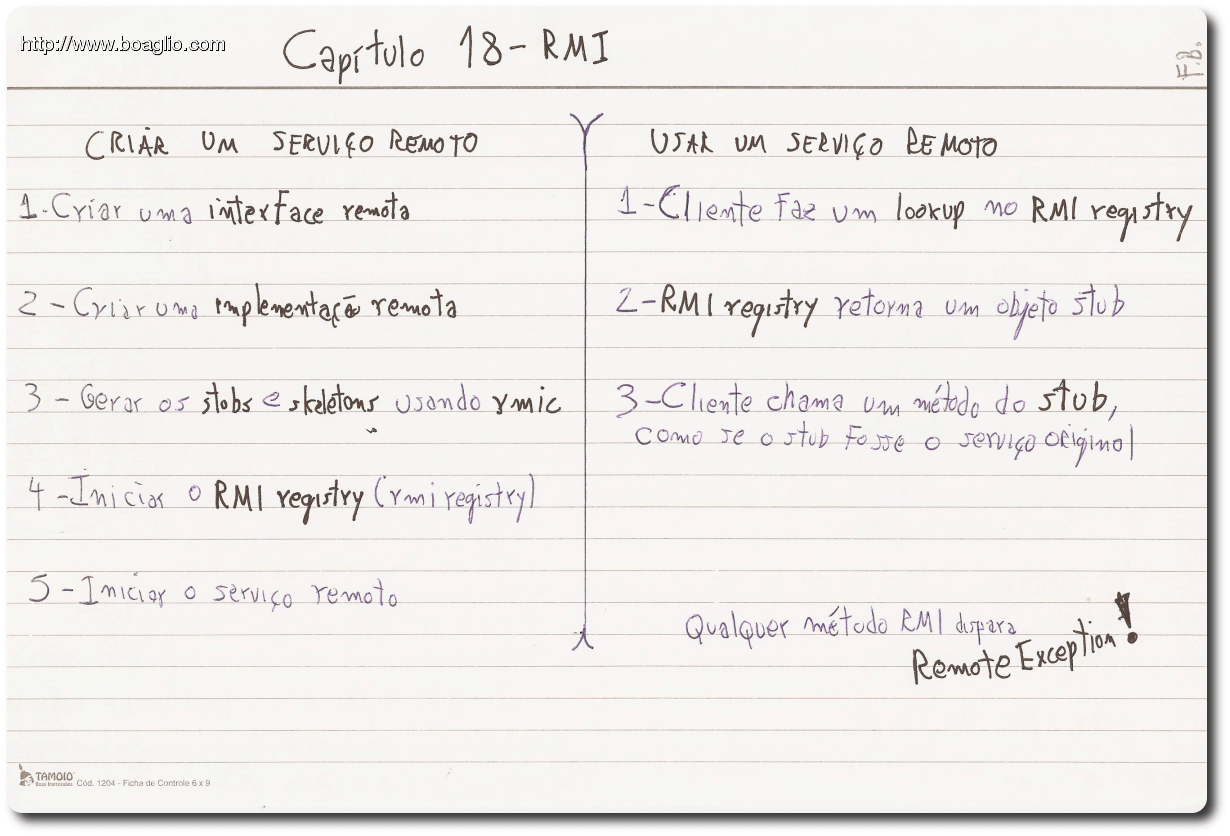 http://www.boaglio.com
Capítulo 18 - RMI
F.B.
CRIAR UM SERVIÇO REMOTO
1-Criar uma interface remota
2 - Criar uma implementação remota
3 - Gerar os stobs e skeletons usando rmic
4 - Iniciar o RMI registry (rmi registry)
5 - Iniciar o serviço remoto
USAR UM SERVIÇO REMOTO
1-Cliente faz um lookup no RMI registry
2-RMI registry retorna um objeto stub
3-Cliente chama um método do stub,
como se o stub fosse o serviço original
Qualquer método RMI dispara
Remote Exception!
TAMOIO
Cód. 1204 - Ficha de Controle 6 x 9